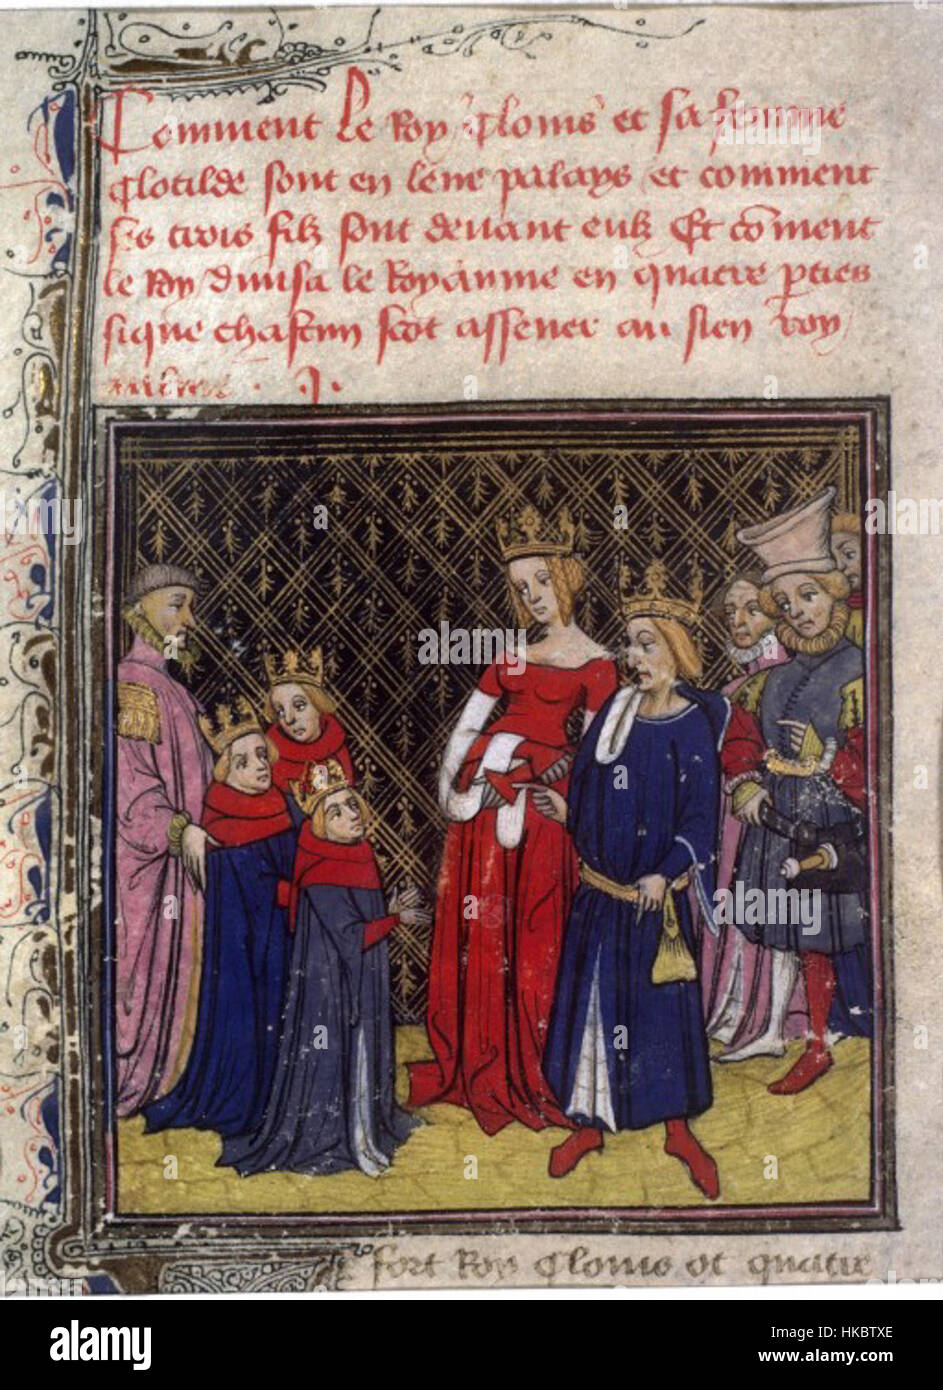 Comment le Roy Clouis et sa femme
Clotilde sont en leur palays et comment
ses trois filz sont deuant eulz Et cōment
le Roy diuisa le Royaume en quatre pties
sique chascun feot assener au sien roy
fort Roy Clouis ot quatre
alamy stock photo
Image ID: HKBTXE
www.alamy.com